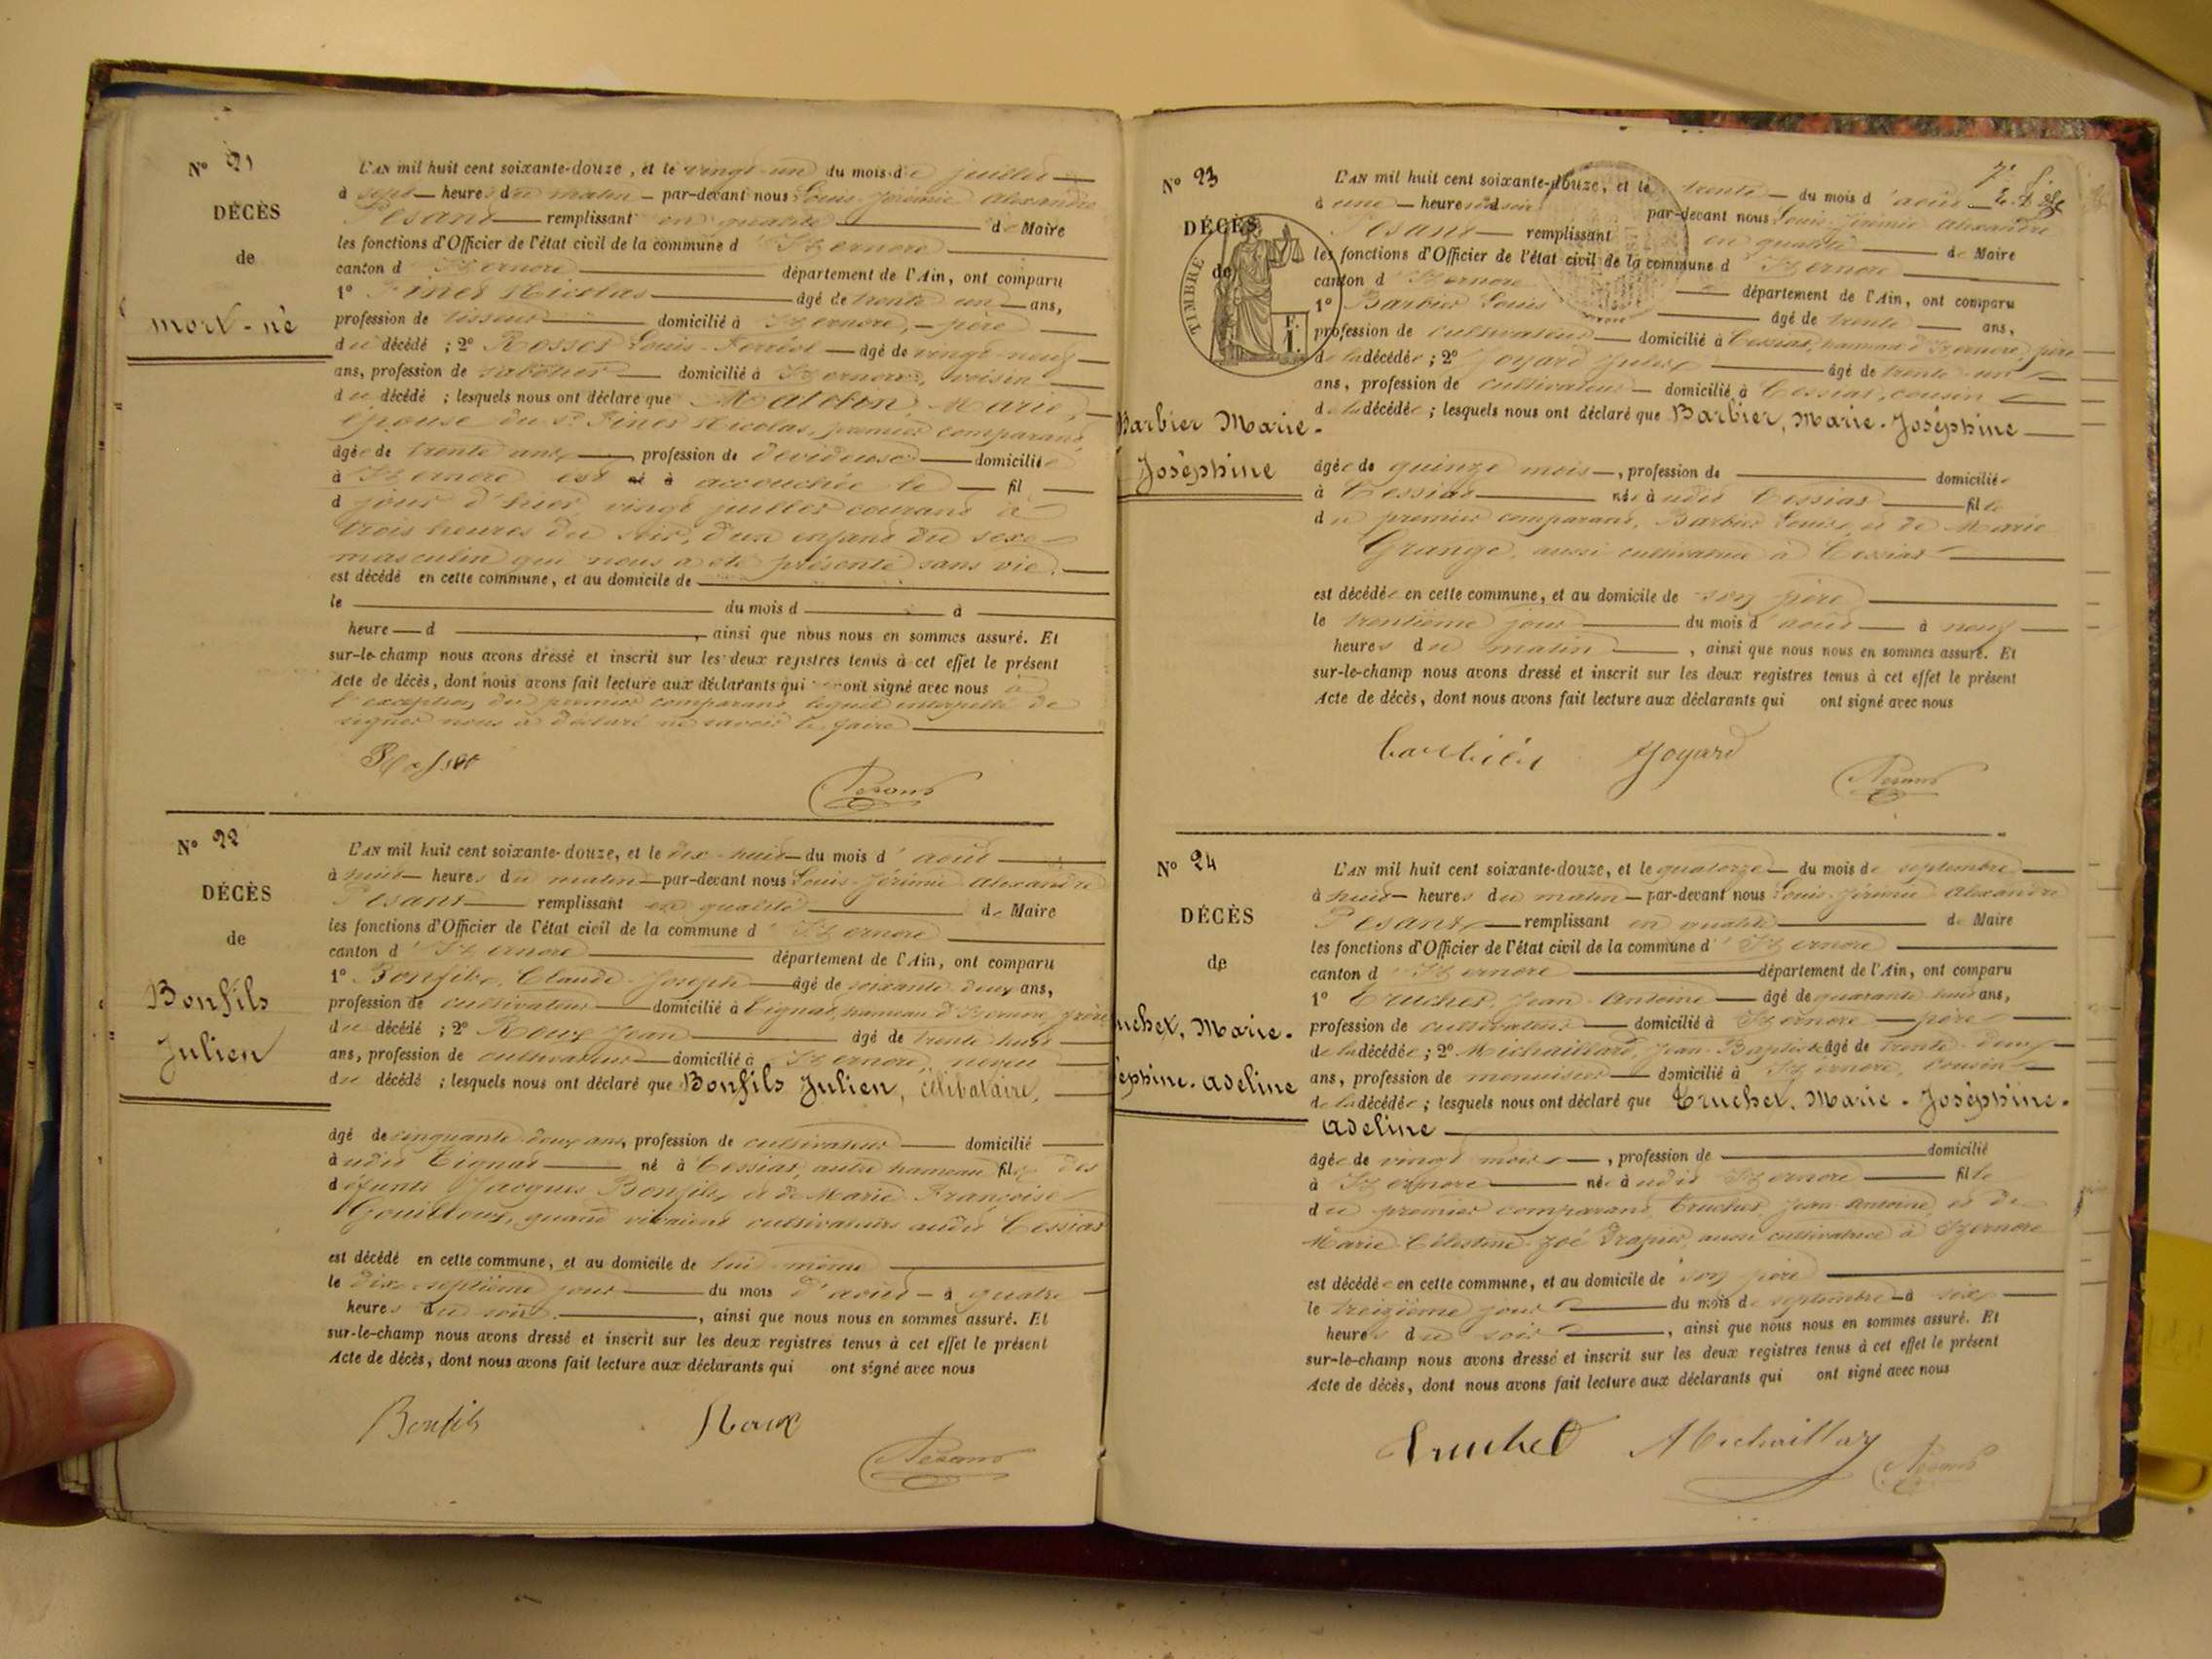 N° 21
DÉCÈS
de
mort-né
L'AN mil huit cent soixante-douze, et le vingt-un du mois de juillet
à sept heures du matin par-devant nous Louis-Jérémie Alexandre
Pesant remplissant en qualité de Maire
les fonctions d'Officier de l'état civil de la commune d'Izernore
canton d'Izernore département de l'Ain, ont comparu
1° Finet Nicolas âgé de trente un ans,
profession de tisseur domicilié à Izernore, père
du décédé ; 2° Rosset Louis-Ferréol âgé de vingt-neuf
ans, profession de sabotier domicilié à Izernore, voisin
du décédé ; lesquels nous ont déclaré que Marie,
épouse du Sr Finet Nicolas, premier comparant
âgée de trente ans, profession de dévideuse domiciliée
à Izernore est né à accouchée le fil
d jour d'hier, vingt juillet courant à
trois heures du soir, d'un enfant du sexe
masculin qui nous a été présenté sans vie.
est décédé en cette commune, et au domicile de
le du mois d à
heure d , ainsi que nous nous en sommes assuré. Et
sur-le-champ nous avons dressé et inscrit sur les deux registres tenus à cet effet le présent
Acte de décès, dont nous avons fait lecture aux déclarants qui ont signé avec nous à
l'exception du premier comparant lequel interpellé de
signer nous a déclaré ne savoir le faire
Rosset
Pesant
N° 22
DÉCÈS
de
Bonfils
Julien
L'AN mil huit cent soixante-douze, et le dix-huit du mois d'août
à huit heures du matin par-devant nous Louis-Jérémie Alexandre
Pesant remplissant en qualité de Maire
les fonctions d'Officier de l'état civil de la commune d'Izernore
canton d'Izernore département de l'Ain, ont comparu
1° Bonfils, Claude-Joseph âgé de soixante-deux ans,
profession de cultivateur domicilié à Tignat, hameau d'Izernore, frère
du décédé ; 2° Roux Jean âgé de trente huit
ans, profession de cultivateur domicilié à Izernore, neveu
du décédé ; lesquels nous ont déclaré que Bonfils Julien, célibataire,
âgé de cinquante-deux ans, profession de cultivateur domicilié
à udit Tignat né à Cessiat, autre hameau fils des
défunts Jacques Bonfils, et de Marie Françoise
Gouilloux, quand vivaient cultivateurs audit Cessiat
est décédé en cette commune, et au domicile de lui-même
le dix-septième jour du mois d'août à quatre
heures du soir , ainsi que nous nous en sommes assuré. Et
sur-le-champ nous avons dressé et inscrit sur les deux registres tenus à cet effet le présent
Acte de décès, dont nous avons fait lecture aux déclarants qui ont signé avec nous
Bonfils Roux
Pesant
N° 23
DÉCÈS
de
TIMBRE
Barbier Marie-
Joséphine
L'AN mil huit cent soixante-douze, et le trente du mois d'août
à une heure du soir par-devant nous Louis-Jérémie Alexandre
Pesant remplissant en qualité de Maire
les fonctions d'Officier de l'état civil de la commune d'Izernore
canton d'Izernore département de l'Ain, ont comparu
1° Barbier Louis âgé de trente ans,
profession de cultivateur domicilié à Cessiat, hameau d'Izernore, père
de la décédée ; 2° Joyard Jules âgé de trente-un
ans, profession de cultivateur domicilié à Cessiat, cousin
de la décédée ; lesquels nous ont déclaré que Barbier, Marie-Joséphine
âgée de quinze mois, profession de domiciliée
à Cessiat née à udit Cessiat fille
du premier comparant, Barbier Louis, et de Marie
Grange, aussi cultivatrice à Cessiat
est décédée en cette commune, et au domicile de son père
le trentième jour du mois d'août à neuf
heures du matin , ainsi que nous nous en sommes assuré. Et
sur-le-champ nous avons dressé et inscrit sur les deux registres tenus à cet effet le présent
Acte de décès, dont nous avons fait lecture aux déclarants qui ont signé avec nous
barbier Joyard
Pesant
N° 24
DÉCÈS
de
uchet, Marie-
séphine-adeline
L'AN mil huit cent soixante-douze, et le quatorze du mois de septembre
à huit heures du matin par-devant nous Louis-Jérémie Alexandre
Pesant remplissant en qualité de Maire
les fonctions d'Officier de l'état civil de la commune d'Izernore
canton d'Izernore département de l'Ain, ont comparu
1° Truchet, Jean-Antoine âgé de quarante-huit ans,
profession de cultivateur domicilié à Izernore père
de la décédée ; 2° Michaillard, Jean-Baptiste âgé de trente-deux
ans, profession de menuisier domicilié à Izernore, cousin
de la décédée ; lesquels nous ont déclaré que Truchet, Marie-Joséphine-
adeline
âgée de vingt mois, profession de domicilié
à Izernore née à udit Izernore fille
du premier comparant, Truchet, Jean-Antoine, et de
Marie-Célestine-Zoé Drapier, aussi cultivatrice à Izernore
est décédée en cette commune, et au domicile de son père
le treizième jour du mois de septembre à six
heures du soir , ainsi que nous nous en sommes assuré. Et
sur-le-champ nous avons dressé et inscrit sur les deux registres tenus à cet effet le présent
Acte de décès, dont nous avons fait lecture aux déclarants qui ont signé avec nous
Truchet Michaillard
Pesant